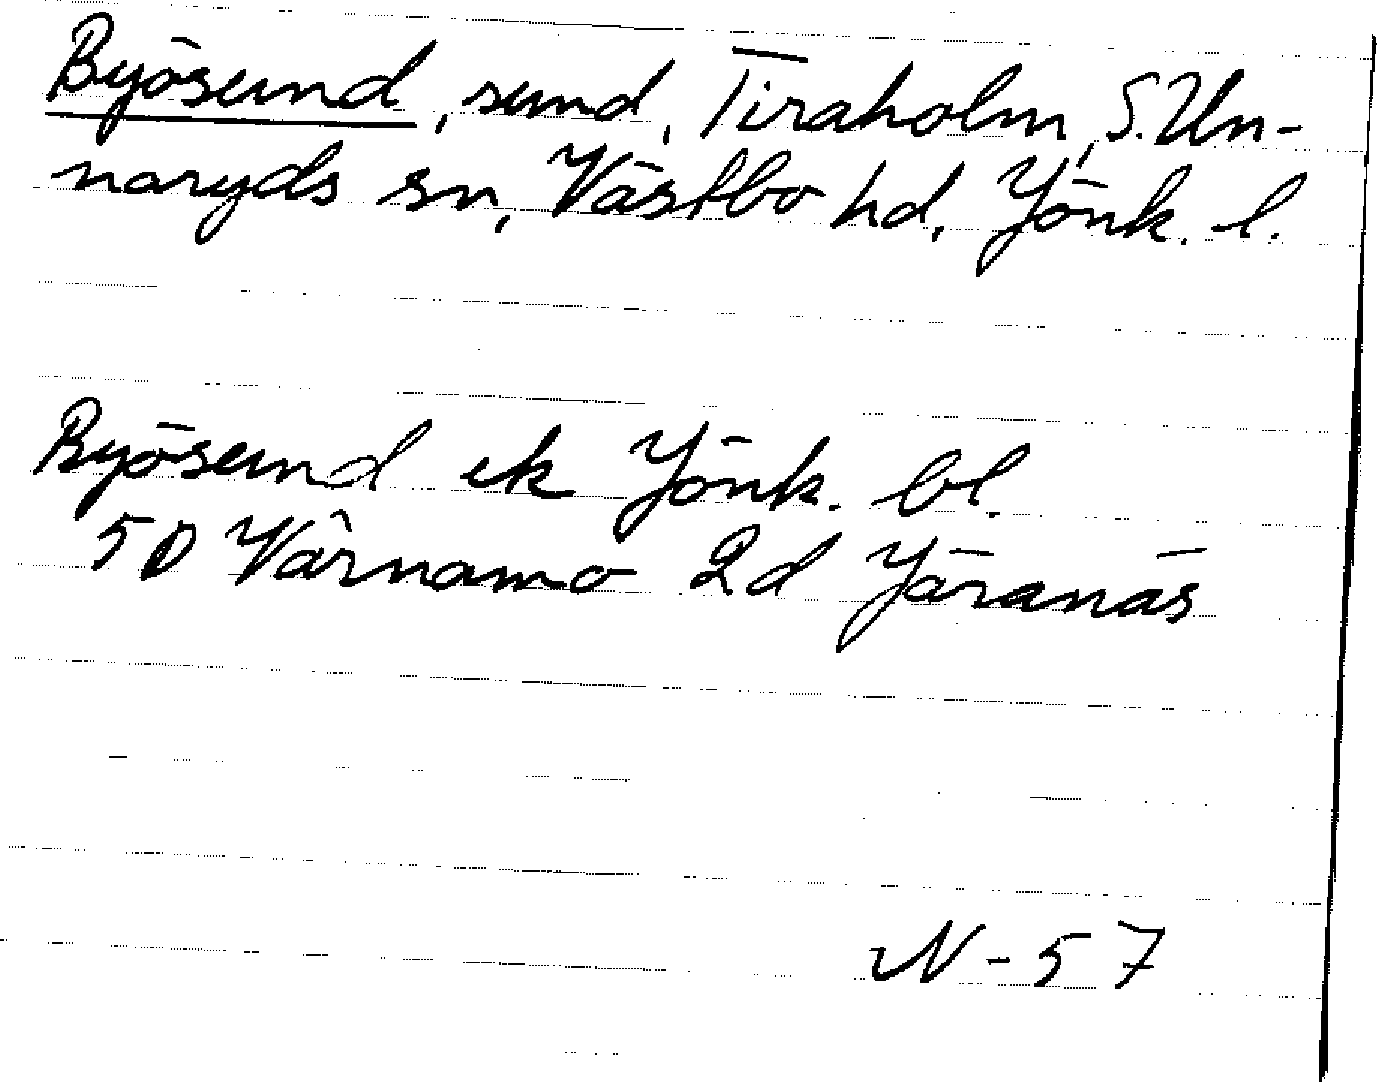 Byösund, sund, Tiraholm, S. Un-
naryds sn, Västbo hd, Jönk. l.
Byösund ek Jönk. bl.
5D Värnamo 2d Järanäs
N - 57